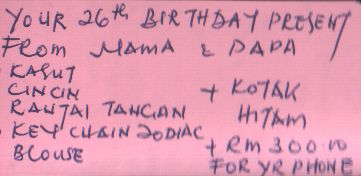 YOUR 26th BIRTHDAY PRESENT
FROM MAMA & PAPA
· KASUT
CINCIN + KOTAK
RANTAI TANGAN HITAM
· KEY CHAIN ZODIAC
BLOUSE + RM 300.00
FOR YR PHONE